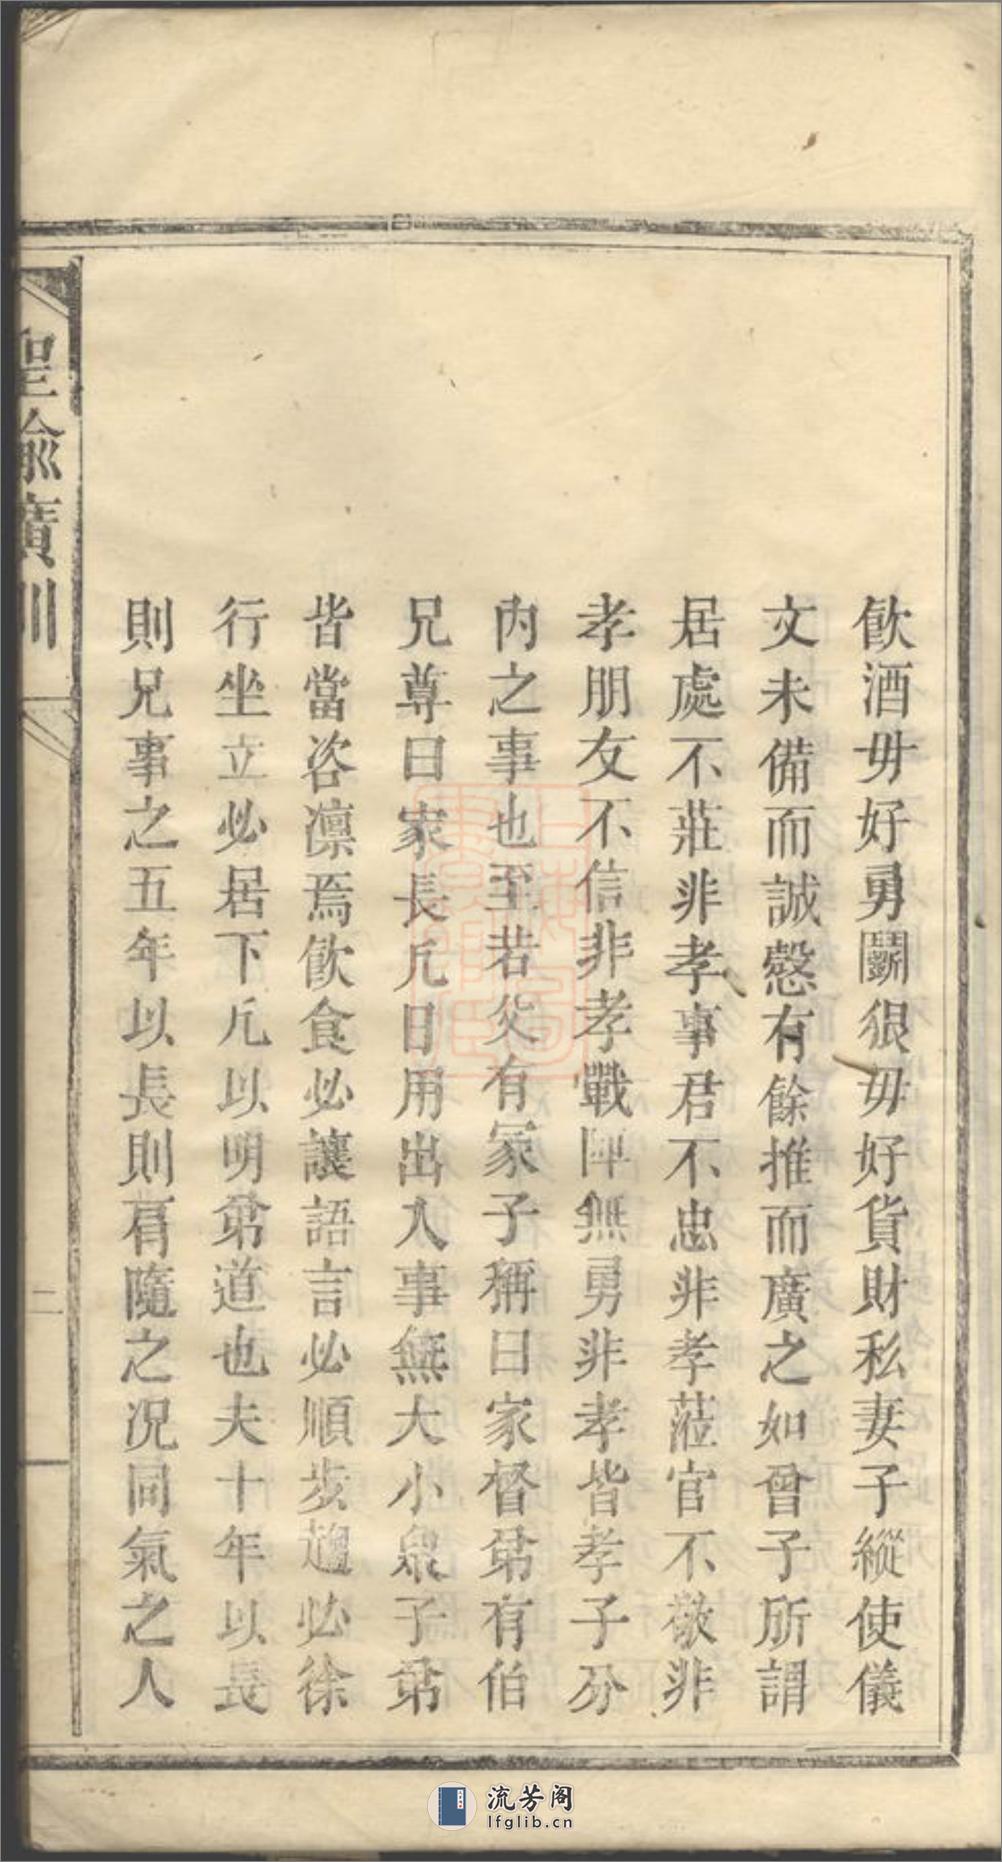 飲酒毋好勇鬭狠毋好貨財私妻子縱使儀
文未備而誠慤有餘推而廣之如曾子所謂
居處不莊非孝事君不忠非孝蒞官不敬非
孝朋友不信非孝戰陣無勇非孝皆孝子分
內之事也至若父有冢子稱曰家督弟有伯
兄尊曰家長凡日用出入事無大小衆子弟
皆當咨禀焉飲食必讓語言必順步趨必徐
行坐立必居下凡以明弟道也夫十年以長
則兄事之五年以長則肩隨之况同氣之人
聖諭廣訓
二
流芳阁
lfglib.cn